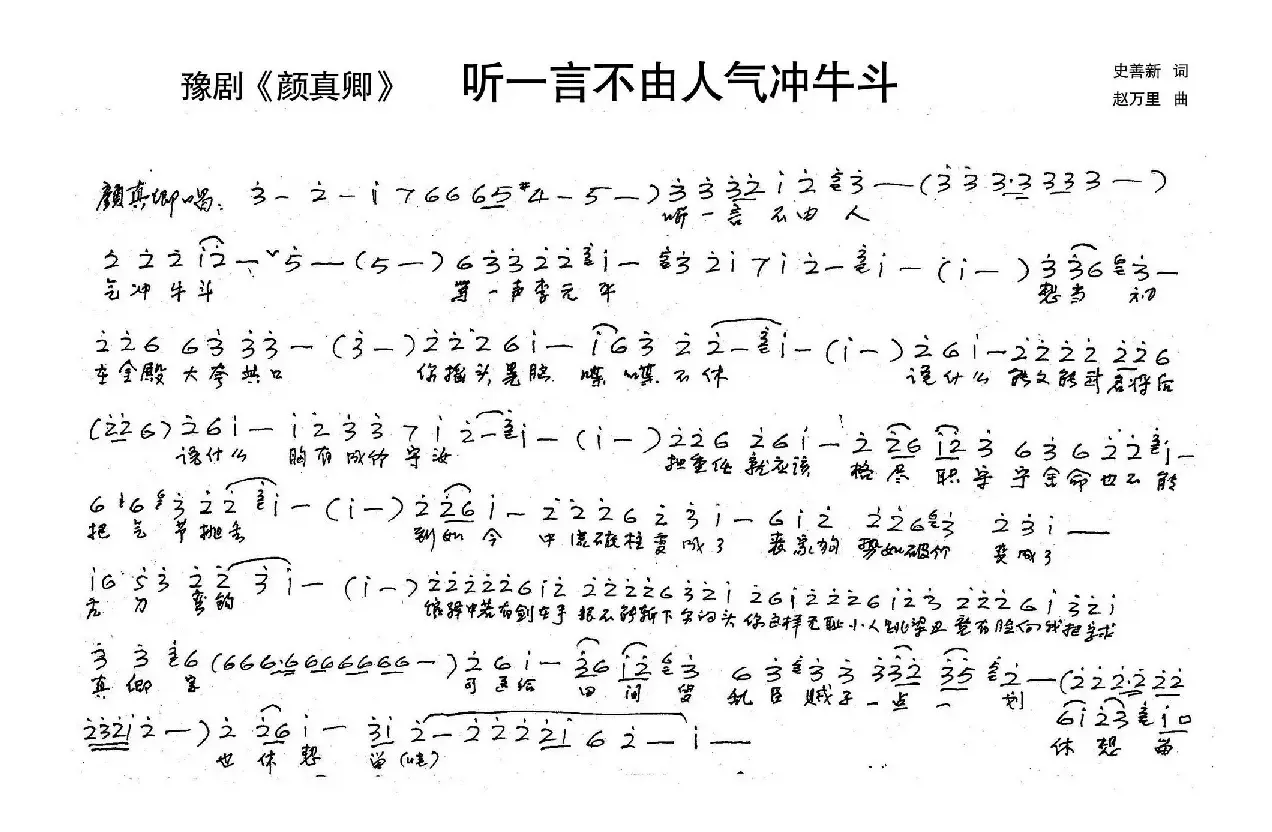 豫剧《颜真卿》 听一言不由人气冲牛斗 史善新 词
赵万里 曲
颜真卿唱: 3 - 2 - i 7 6 6 6 5 #4 - 5 — ) 3 3 3 2 i 2 3 — ( 3 3 3 · 3 3 3 3 — )
听一言 不由 人
2 2 2 i 2 — 5 — ( 5 — ) 6 3 3 2 2 i — 3 2 i 7 i 2 — i — ( i — ) 3 3 6 3 —
气冲牛斗 骂一声李元平 想当 初
2 2 6 6 3 3 3 — ( 3 — ) 2 2 2 6 i — i 6 3 2 2 — i — ( i — ) 2 6 i — 2 2 2 2 2 2 6
在金殿 大夸 口 你摇头晃脑 喋喋不休 说什么 能文能武君将后
( 2 2 6 ) 2 6 i — i 2 3 3 7 i 2 — i — ( i — ) 2 2 6 2 6 i — 2 2 6 i 2 3 6 3 6 2 2 i —
说什么 胸有成竹守汝 担重任 就应该 格尽 职守 宁舍命也不能
6 i 6 3 2 2 i — ( i — ) 2 2 6 i — 2 2 2 6 2 3 i — 6 i 2 2 2 6 3 2 3 i —
把气节抛丢 到如今 中流砥柱变成了 丧家狗 势如破竹 变成了
i 6 5 3 2 2 3 i — ( i — ) 2 2 2 2 2 6 i 2 2 2 2 2 6 3 2 i 2 6 i 2 2 2 6 i 2 3 2 2 2 6 i 3 2 i
刀 弯钩 馆驿中若有剑在手 恨不能斩下尔的头 你这样无耻小人跳梁丑 竟有脸向我把 求
3 3 6 ( 6 6 6 · 6 6 6 6 6 6 6 — ) 2 6 i — 2 6 i 2 3 6 3 3 3 3 3 2 3 5 2 — ( 2 2 2 · 2 2 2
真卿 可 给 留 乱臣贼子一点一 划
2 3 2 i 2 — ) 2 2 6 i — 3 i 2 — 2 2 2 2 i 6 2 — i — 6 i 2 3 i 0
也休想 留(哇) 休想 留